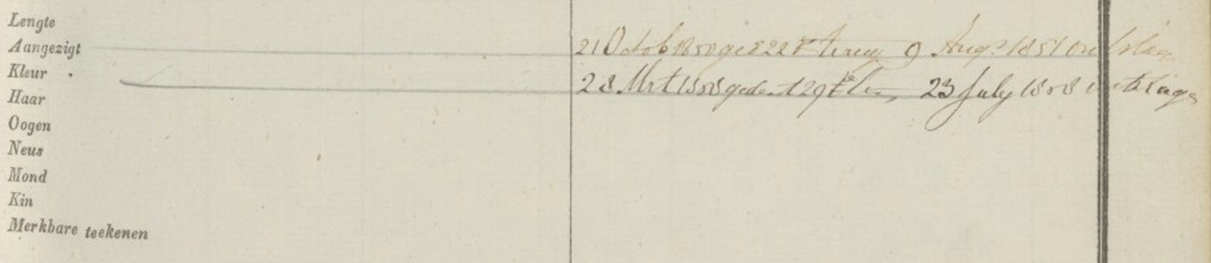 Lengte
Aangezigt
21 Octob 1850 gedt 22 8 terug 9 Aug 1851 ontslag
Kleur
28 Mrt 1858 gedet 29 23 July 1858 ontslagen
Haar
Oogen
Neus
Mond
Kin
Merkbare teekenen